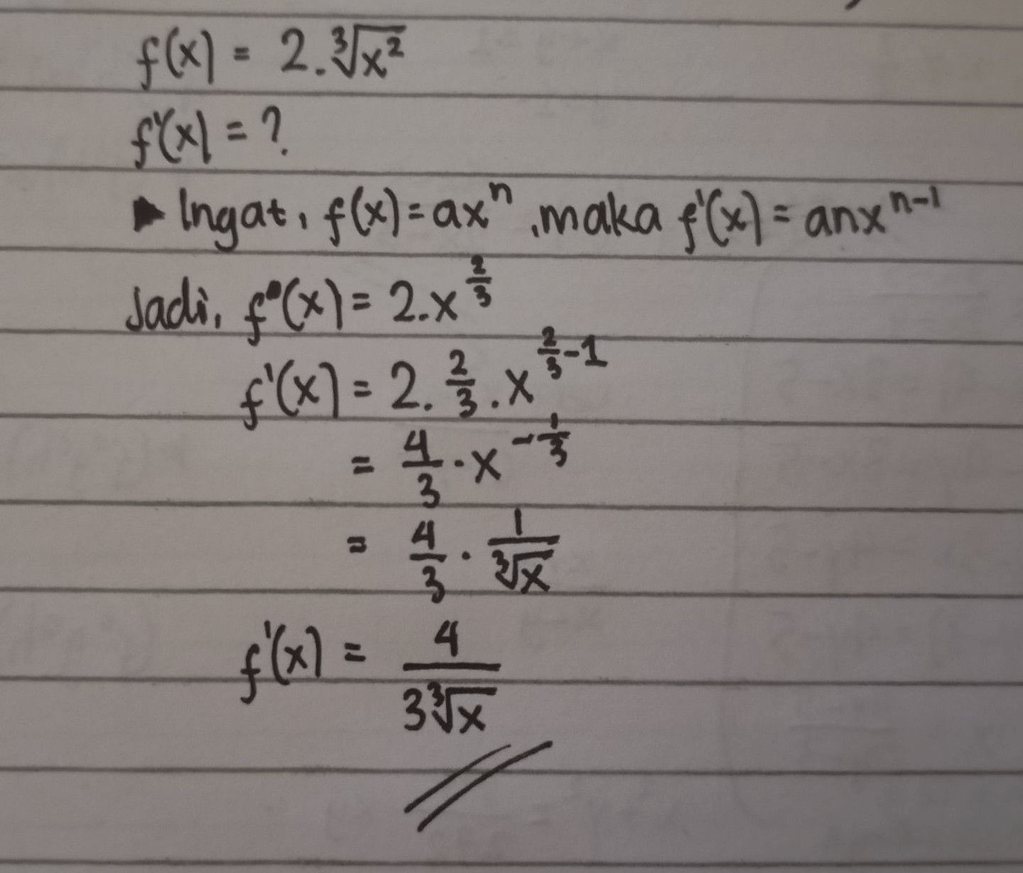 f(x) = 2.∛x²
f'(x) = ?
▶ Ingat, f(x) = axⁿ, maka f'(x) = anxⁿ⁻¹
Jadi, f(x) = 2.x^(2/3)
f'(x) = 2. 2/3 . x^(2/3 - 1)
= 4/3 . x^(-1/3)
= 4/3 . 1/∛x
f'(x) = 4/(3∛x)